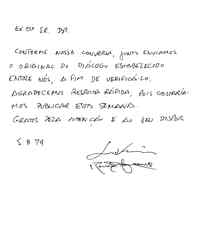 EXMO SR. DR.
CONFORME NOSSA CONVERSA, JUNTO ENVIAMOS
O ORIGINAL DO DIÁLOGO ESTABELECIDO
ENTRE NÓS, A FIM DE VERIFICÁ-LO.
AGRADECEMOS RESPOSTA RÁPIDA, POIS GOSTARÍA-
MOS PUBLICAR ESTA SEMANA.
GRATOS PELA ATENÇÃO E AO SEU DISPOR
5.8.79